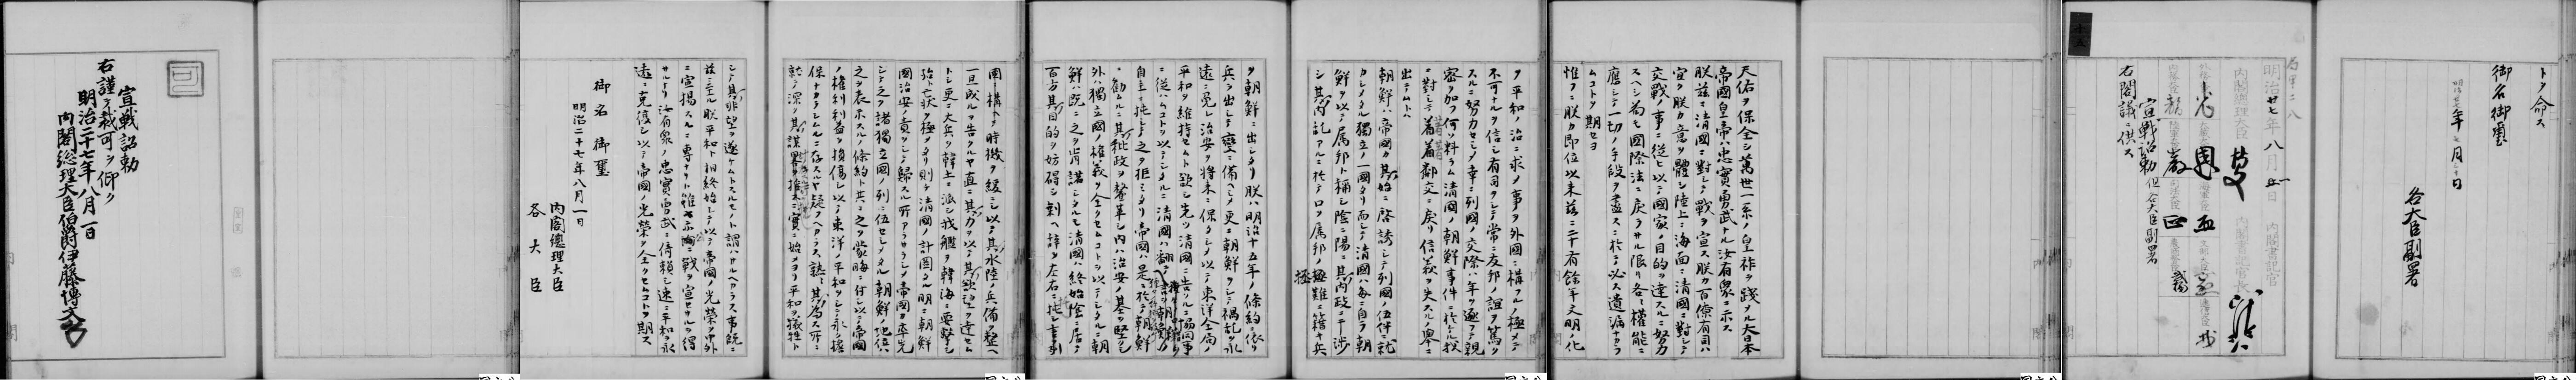 トヲ命ス
御名御璽
各大臣副署
明治廿七年八月一日
内閣総理大臣
内閣書記官長
内閣書記官
宣戰詔勅 但各大臣副署
右閣議ニ供ス
天佑ヲ保全シ萬世一系ノ皇祚ヲ踐メル大日本
帝國皇帝ハ忠實勇武ナル汝有衆ニ示ス
朕茲ニ清國ニ對シテ戰ヲ宣ス朕カ百僚有司ハ
宜ク朕カ意ヲ體シ陸上ニ海面ニ清國ニ對シテ
交戰ノ事ニ從ヒ以テ國家ノ目的ヲ達スルニ努力
スヘシ苟モ國際法ニ戻ラサル限リ各々權能ニ
應シテ一切ノ手段ヲ盡スニ於テ必ス遺漏ナカラ
ムコトヲ期セヨ
惟フニ朕カ即位以來茲ニ二十有餘年文明ノ化
ヲ平和ノ治ニ求メ事ヲ外國ニ構フルノ極メテ
不可ナルヲ信シ有司ヲシテ常ニ友邦ノ誼ヲ篤ク
スルニ努力セシメ幸ニ列國ノ交際ハ年ヲ逐フテ親
密ヲ加フ何ソ料ラム清國ノ朝鮮事件ニ於ケル我
ニ對シテ著著鄰交ニ戻リ信義ヲ失スルノ擧ニ
出テムトハ
朝鮮ハ帝國カ其ノ始ニ啓誘シテ列國ノ伍伴ニ就
カシメタル獨立ノ一國タリ而シテ清國ハ毎ニ自ラ朝
鮮ヲ以テ屬邦ト稱シ陰ニ陽ニ其ノ内政ニ干渉
シ其ノ内亂アルニ於テ口ヲ屬邦ノ拯難ニ籍キ兵
ヲ朝鮮ニ出シタリ朕ハ明治十五年ノ條約ニ依リ
兵ヲ出シテ變ニ備ヘシメ更ニ朝鮮ヲシテ禍亂ヲ永
遠ニ免レ治安ヲ將來ニ保タシメ以テ東洋全局ノ
平和ヲ維持セムト欲シ先ツ清國ニ告クルニ協同事
ニ從ハムコトヲ以テシタルニ清國ハ翻テ
自主ニ托シテ之ヲ拒ミタリ帝國ハ是ニ於テ朝鮮
ニ勸ムルニ其ノ秕政ヲ釐革シ内ハ治安ノ基ヲ堅クシ
外ハ獨立國ノ權義ヲ全クセムコトヲ以テシタルニ朝
鮮ハ既ニ之ヲ肯諾シタルモ清國ハ終始陰ニ居テ
百方其ノ目的ヲ妨碍シ剰ヘ辭ヲ左右ニ托シ
時機ヲ緩ニシ以テ其ノ水陸ノ兵備ヲ整ヘ
一旦成ルヲ告クルヤ直ニ其ノ力ヲ以テ其ノ欲望ヲ達セム
トシ更ニ大兵ヲ韓土ニ派シ我艦ヲ韓海ニ要撃シ
殆ト亡狀ヲ極メタリ則チ清國ノ計圖タル明ニ朝鮮
國治安ノ責ヲシテ歸スル所アラサラシメ帝國カ率先
シテ之ヲ諸獨立國ノ列ニ伍セシメタル朝鮮ノ地位ハ
之ヲ表示スルノ條約ト共ニ之ヲ蒙晦ニ付シ以テ帝國
ノ權利利益ヲ損傷シ以テ東洋ノ平和ヲシテ永ク擔
保ナカラシムルニ存スルヤ疑フヘカラス熟々其ノ爲ス所ニ
就テ深ク其ノ謀ヲ揣ルニ實ニ始メヨリ平和ヲ犠牲ト
シテ其ノ非望ヲ遂ケムトスルモノト謂ハサルヘカラス事既ニ
茲ニ至ル朕平和ト相終始シテ以テ帝國ノ光榮ヲ中外
ニ宣揚スルニ專ナリト雖亦公ニ戰ヲ宣セサルヲ得
サルナリ汝有衆ノ忠實勇武ニ倚頼シ速ニ平和ヲ永
遠ニ克復シ以テ帝國ノ光榮ヲ全クセムコトヲ期ス
御名 御璽
明治二十七年八月一日
内閣總理大臣
各大臣
宣戰詔勅
右謹テ裁可ヲ仰ク
明治二十七年八月一日
内閣総理大臣伯爵伊藤博文